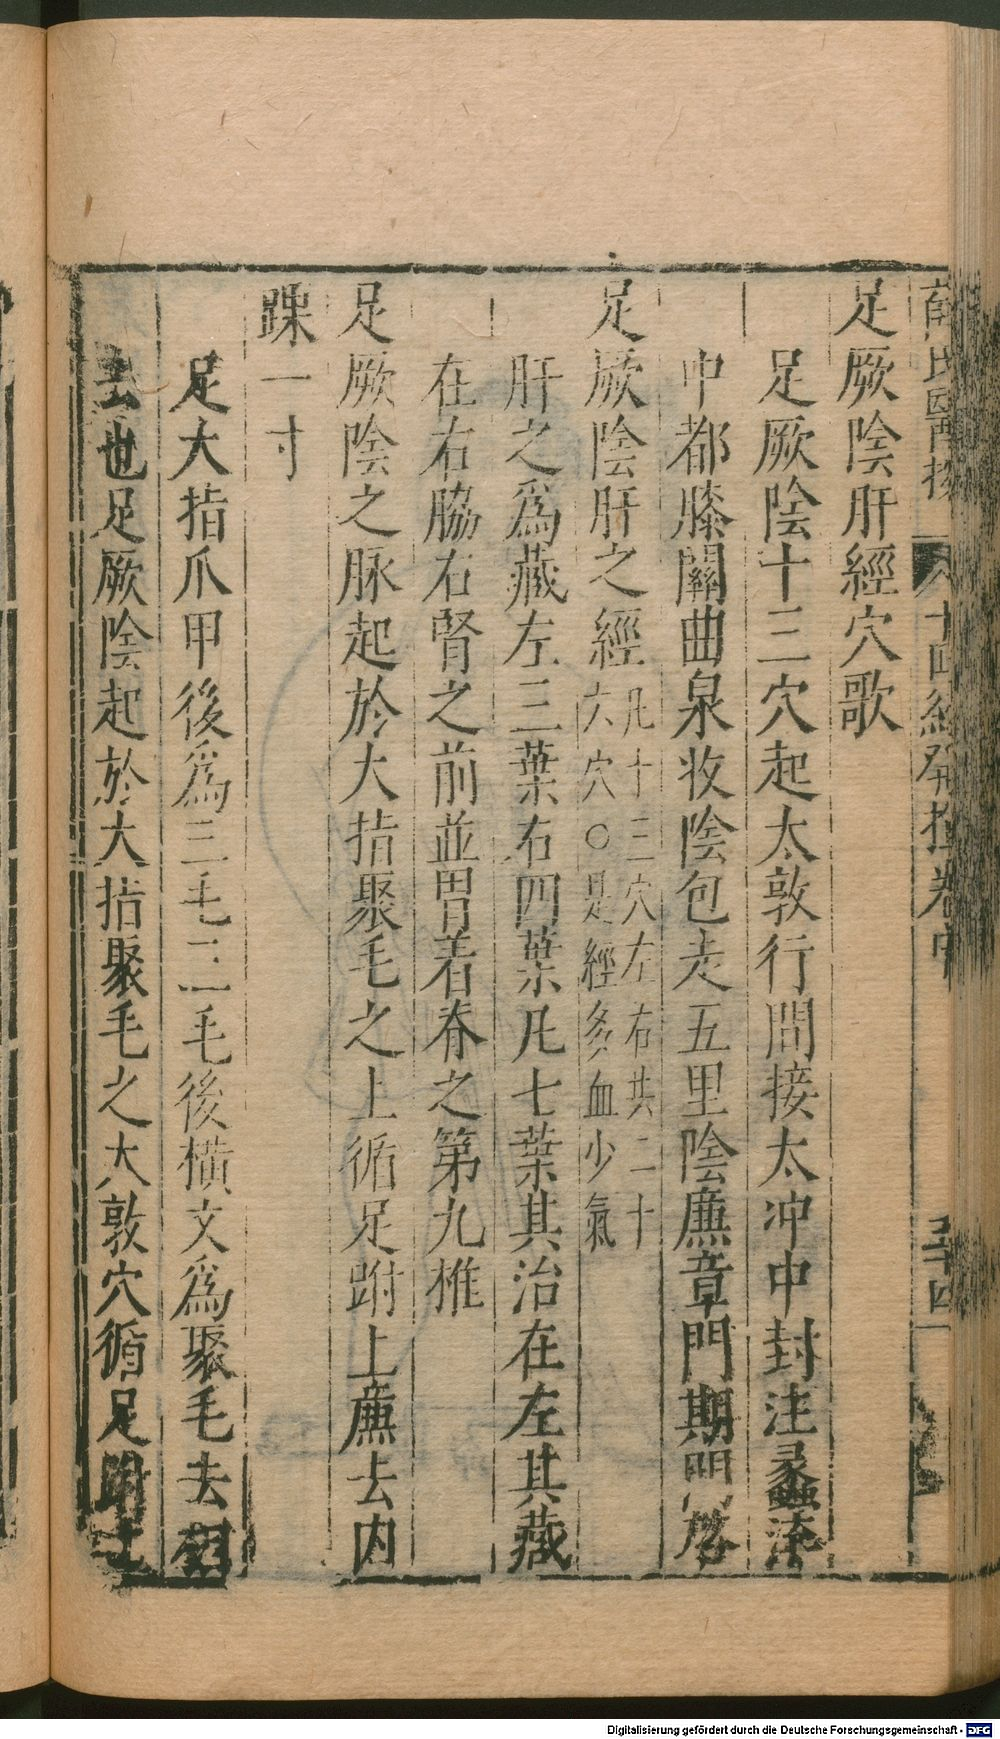 足厥陰肝經穴歌
足厥陰十三穴起太敦行間接太冲中封注蠡溝
中都膝關曲泉收陰包走五里陰廉章門期門啓
足厥陰肝之經凡十三穴左右共二十
六穴○是經多血少氣
肝之爲藏左三葉右四葉凡七葉其治在左其藏
在右脇右腎之前並胃着脊之第九椎
足厥陰之脉起於大指聚毛之上循足跗上廉去内
踝一寸
足大指爪甲後爲三毛三毛後橫文爲聚毛去相
去也足厥陰起於大指聚毛之大敦穴循足跗上
薛氏醫按 十四經發揮卷中 三十四
Digitalisierung gefördert durch die Deutsche Forschungsgemeinschaft - DFG